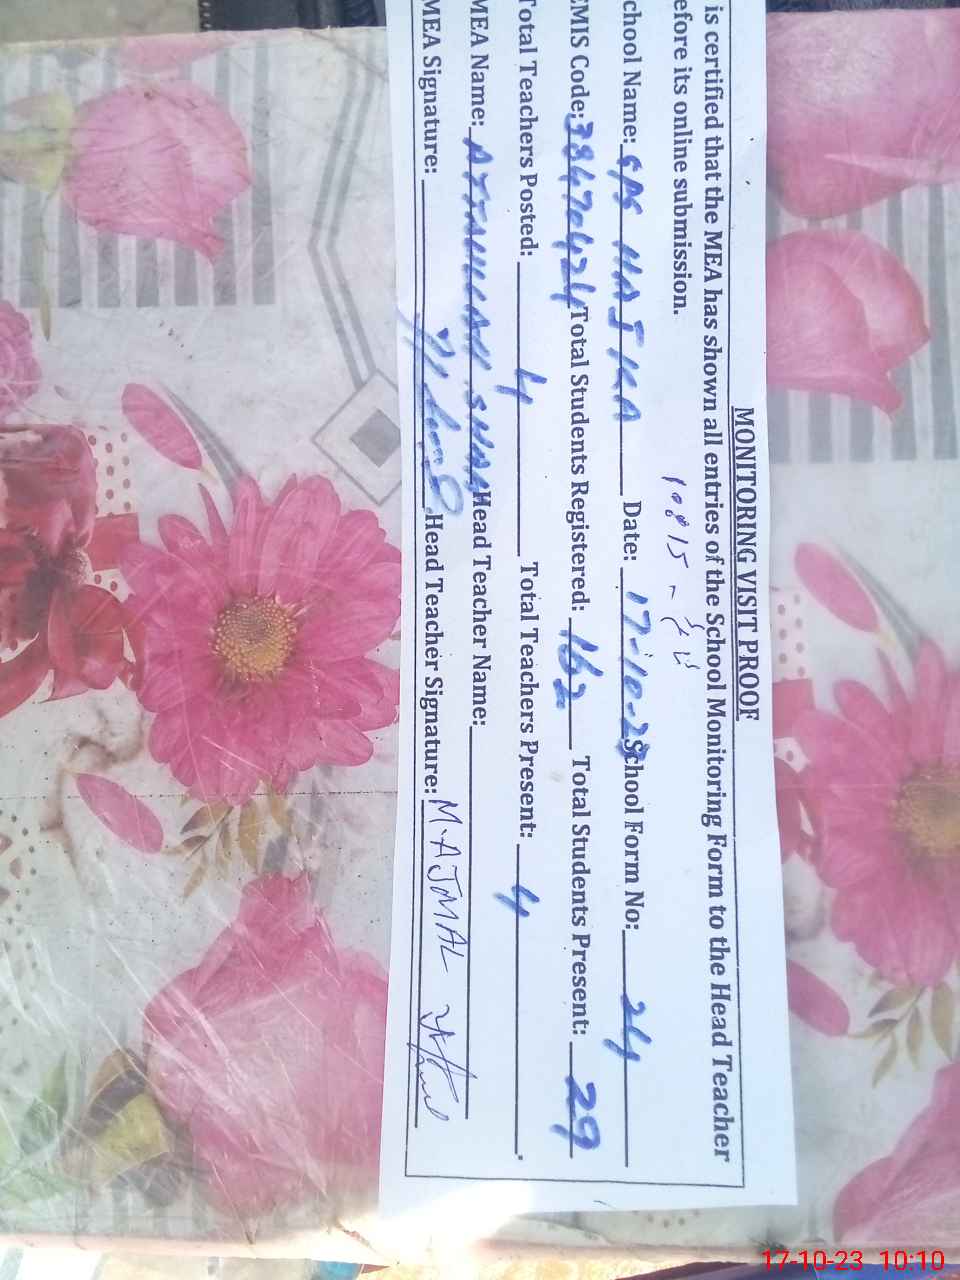 MONITORING VISIT PROOF
is certified that the MEA has shown all entries of the School Monitoring Form to the Head Teacher
efore its online submission.
chool Name: GPS HAJIKA Date: 17-10-23 School Form No: 24
EMIS Code: 38470424 Total Students Registered: 162 Total Students Present: 29
Total Teachers Posted: 4 Total Teachers Present: 4
MEA Name: ATTAULLAH SHAH Head Teacher Name:
MEA Signature: Head Teacher Signature: M.AJMAL
17-10-23 10:10